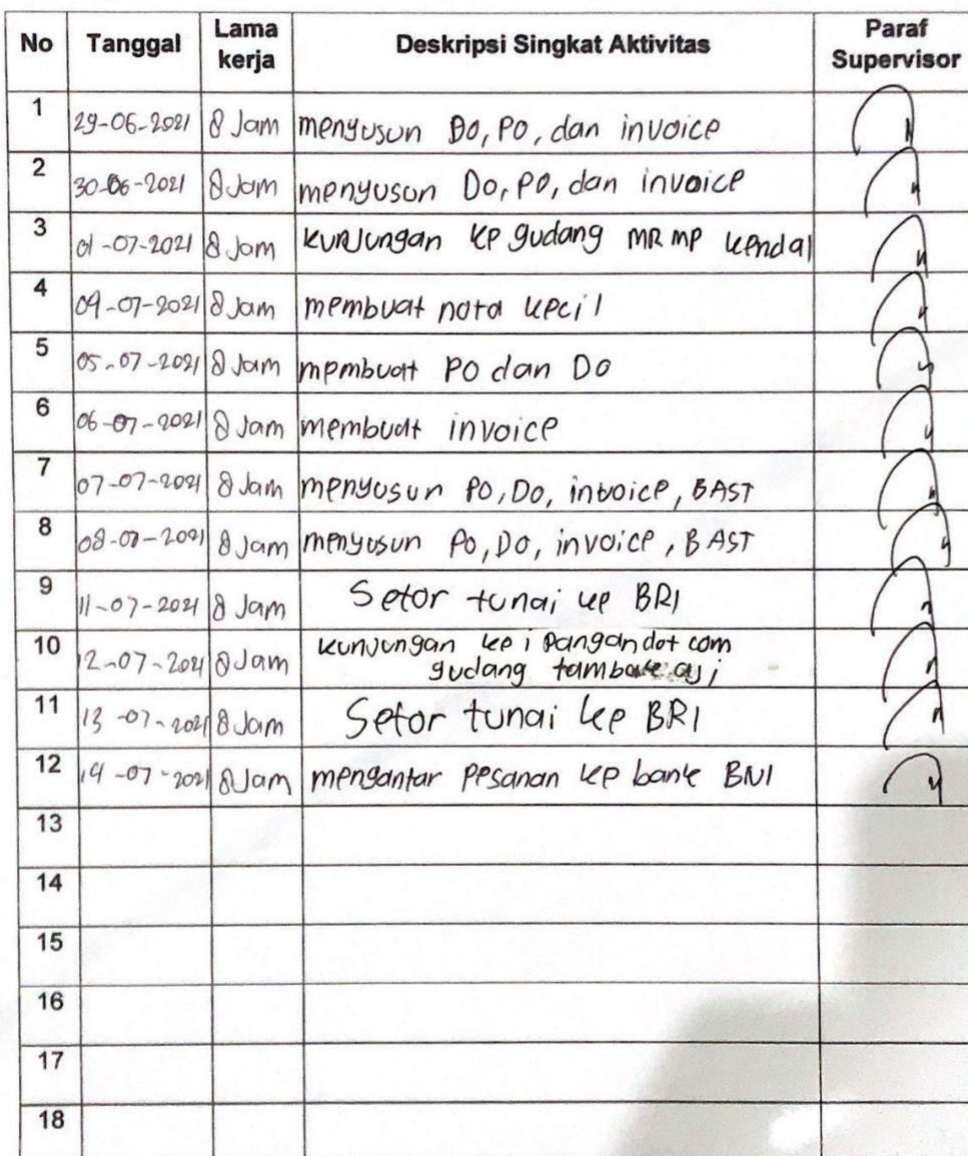 No Tanggal Lama kerja Deskripsi Singkat Aktivitas Paraf Supervisor
1 29-06-2021 8 Jam menyusun DO, PO, dan invoice
2 30-06-2021 8 Jam menyusun Do, PO, dan invoice
3 01-07-2021 8 Jam kunjungan ke gudang MRMP kendal
4 09-07-2021 8 Jam membuat nota kecil
5 05-07-2021 8 Jam membuatt PO dan Do
6 06-07-2021 8 Jam membuat invoice
7 07-07-2021 8 Jam menyusun PO, Do, invoice, BAST
8 08-07-2021 8 Jam menyusun Po, Do, invoice, BAST
9 11-07-2021 8 Jam Setor tunai ke BRI
10 12-07-2021 8 Jam kunjungan ke i pangandotcom
gudang
11 13-07-2021 8 Jam Setor tunai ke BRI
12 14-07-2021 8 Jam mengantar pesanan ke bank BNI
13
14
15
16
17
18